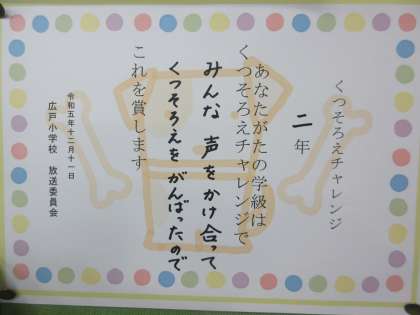 くつそろえチャレンジ
二年
あなたがたの学級は
くつそろえチャレンジで
みんな 声をかけ合って
くつそろえをがんばったので
これを賞します
令和五年十二月十一日
広戸小学校 放送委員会